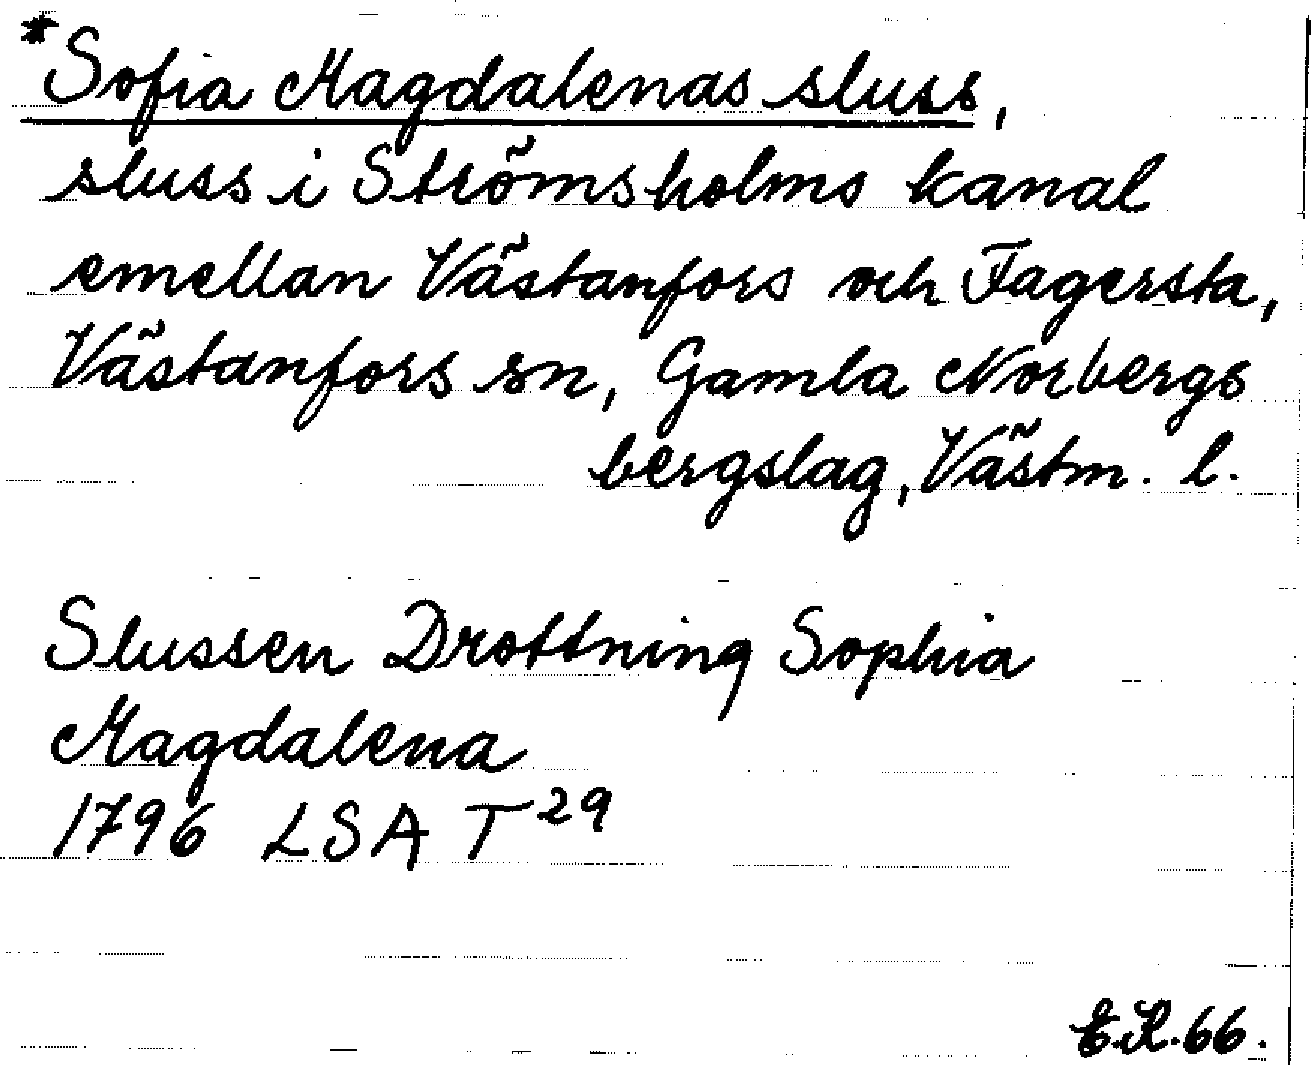 *Sofia Magdalenas sluss,
sluss i Strömsholms kanal
emellan Västanfors och Fagersta,
Västanfors sn, Gamla Norbergs
bergslag, Västm. l.
Slussen Drottning Sophia
Magdalena
1796 LSA T 29
E.K.66.